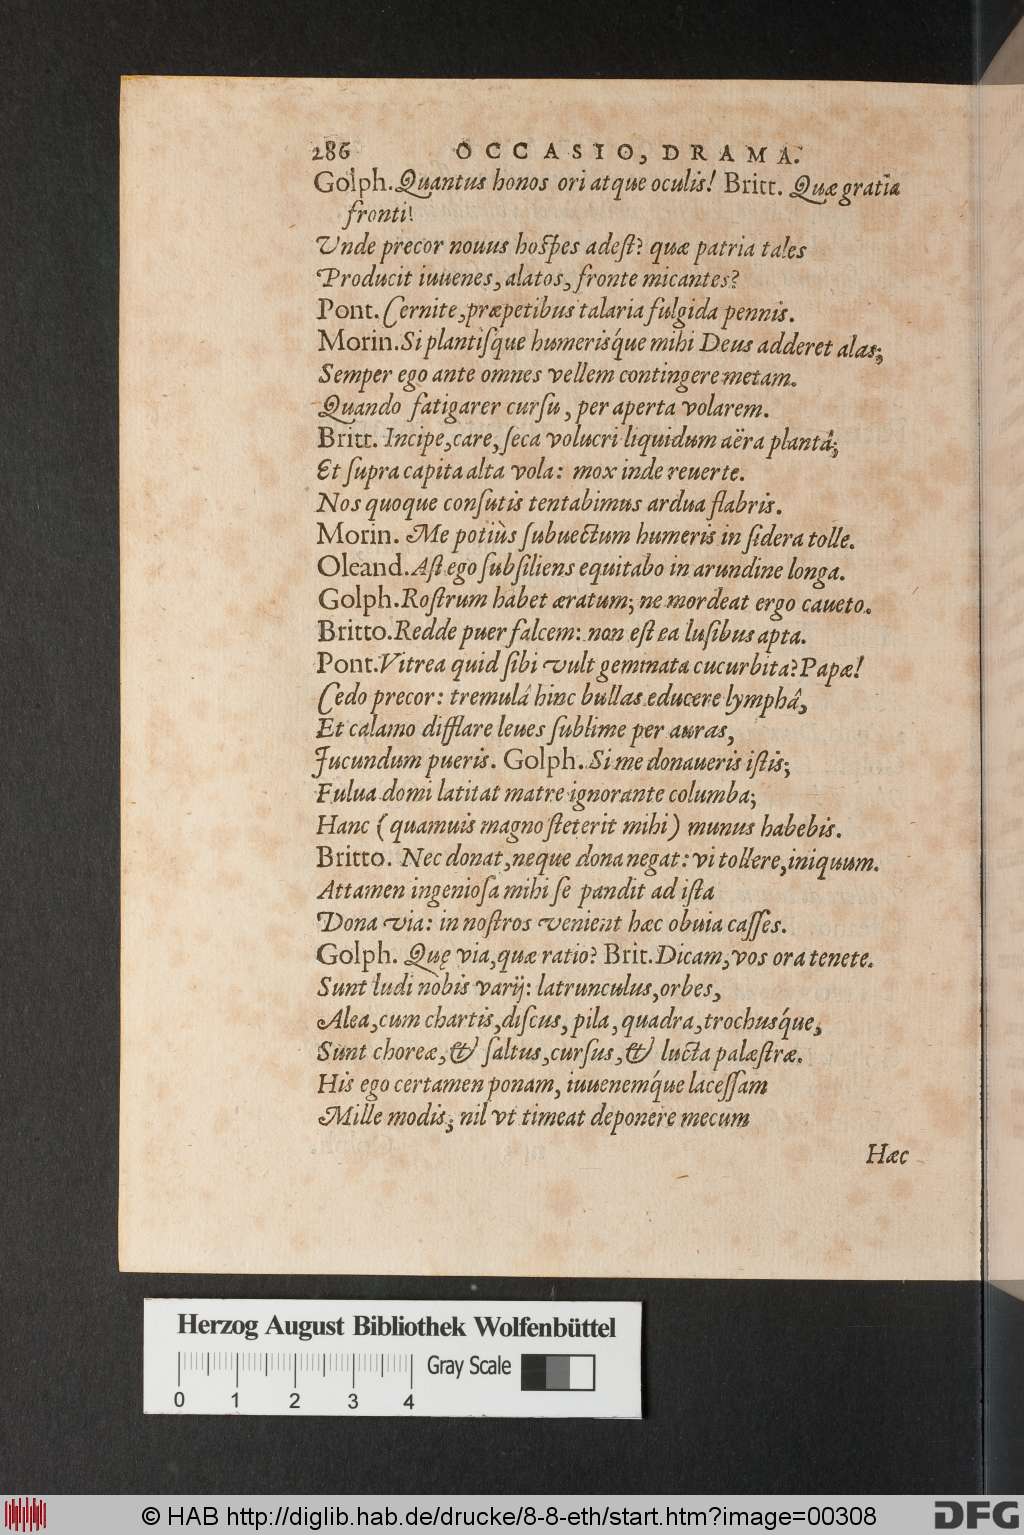 286 OCCASIO, DRAMA.
Golph. Quantus honos ori atque oculis! Britt. Quæ gratia
fronti!
Vnde precor nouus hoſpes adeſt? quæ patria tales
Producit iuuenes, alatos, fronte micantes?
Pont. Cernite, præpetibus talaria fulgida pennis.
Morin. Si plantiſque humeriśque mihi Deus adderet alas;
Semper ego ante omnes vellem contingere metam.
Quando fatigarer curſu, per aperta volarem.
Britt. Incipe, care, ſeca volucri liquidum aëra plantâ;
Et ſupra capita alta vola: mox inde reuerte.
Nos quoque conſutis tentabimus ardua flabris.
Morin. Me potiùs ſubuectum humeris in ſidera tolle.
Oleand. Aſt ego ſubſiliens equitabo in arundine longa.
Golph. Roſtrum habet æratum; ne mordeat ergo caueto.
Britto. Redde puer falcem: non eſt ea luſibus apta.
Pont. Vitrea quid ſibi vult gemmata cucurbita? Papæ!
Cedo precor: tremulâ hinc bullas educere lymphâ,
Et calamo difflare leues ſublime per auras,
Jucundum pueris. Golph. Si me donaueris iſtis;
Fulua domi latitat matre ignorante columba;
Hanc (quamuis magno ſteterit mihi) munus habebis.
Britto. Nec donat, neque dona negat: vi tollere, iniquum.
Attamen ingenioſa mihi ſe pandit ad iſta
Dona via: in noſtros venient hæc obuia caſſes.
Golph. Quę via, quæ ratio? Brit. Dicam, vos ora tenete.
Sunt ludi nobis varij: latrunculus, orbes,
Alea, cum chartis, diſcus, pila, quadra, trochuśque,
Sunt choreæ, & ſaltus, curſus, & lucta palæſtræ.
His ego certamen ponam, iuueneḿque laceſſam
Mille modis; nil vt timeat deponere mecum
Hæc
Herzog August Bibliothek Wolfenbüttel
Gray Scale
0 1 2 3 4
© HAB http://diglib.hab.de/drucke/8-8-eth/start.htm?image=00308
DFG